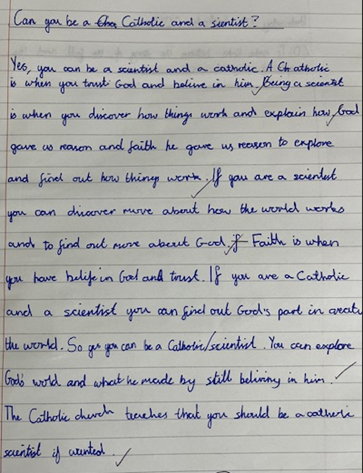 Can you be a Catholic and a sientist?
Yes, you can be a scientist and a catholic. A Catholic
is when you trust God and belive in him. Being a scienist
is when you discover how things work and explain how. God
gave us reason and faith he gave us reason to explore
and find out how things work. If you are a scientist
you can discover more about how the world works
and to find out more about God. Faith is when
you have belife in God and trust. If you are a Catholic
and a scientist you can find out God's part in
the world. So you can be a Catholic/scientist. You can explore
God's world and what he made by still beliving in him.
The Catholic church teaches that you should be a catholic
scientist if wanted.